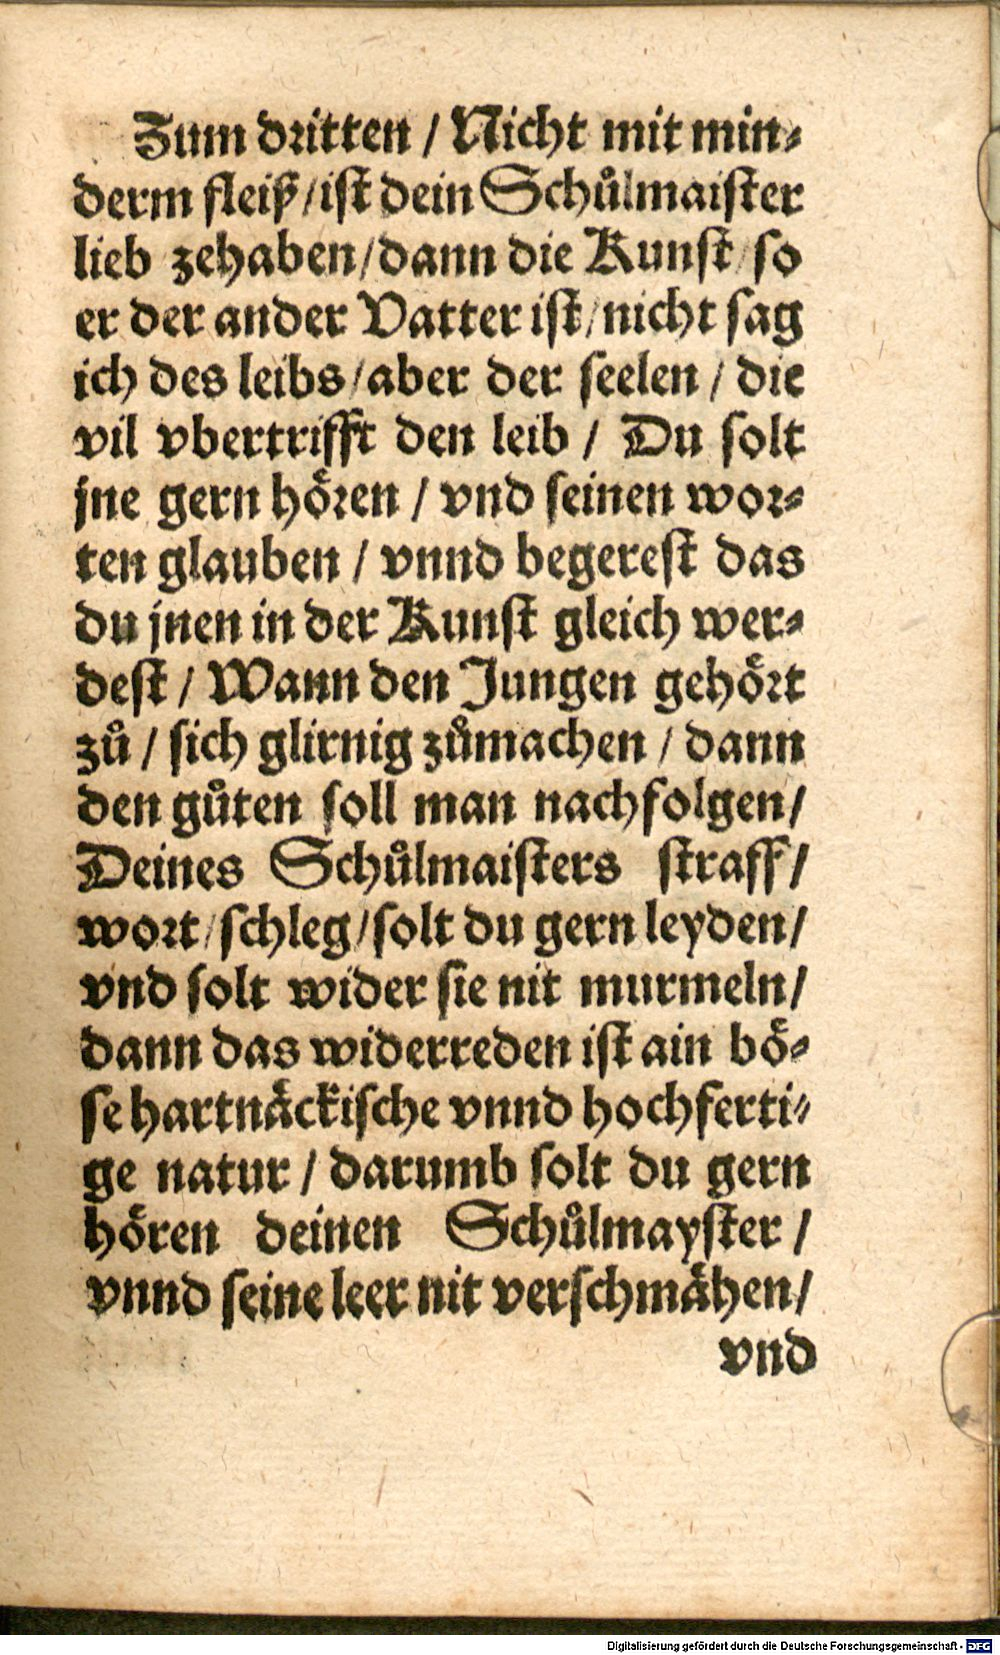 Zum dritten / Nicht mit min⸗
derm fleiß / ist dein Schůlmaister
lieb zehaben / dann die Kunst / so
er der ander Vatter ist / nicht sag
ich des leibs / aber der seelen / die
vil vbertrifft den leib / Du solt
jne gern hören / vnd seinen wor⸗
ten glauben / vnnd begerest das
du jnen in der Kunst gleich wer⸗
dest / Wann den Jungen gehört
zů / sich glirnig zůmachen / dann
den gůten soll man nachfolgen /
Deines Schůlmaisters straff /
wort / schleg / solt du gern leyden /
vnd solt wider sie nit murmeln /
dann das widerreden ist ain bö⸗
se hartnäckische vnnd hochferti⸗
ge natur / darumb solt du gern
hören deinen Schůlmayster /
vnnd seine leer nit verschmähen /
vnd
Digitalisierung gefördert durch die Deutsche Forschungsgemeinschaft - DFG